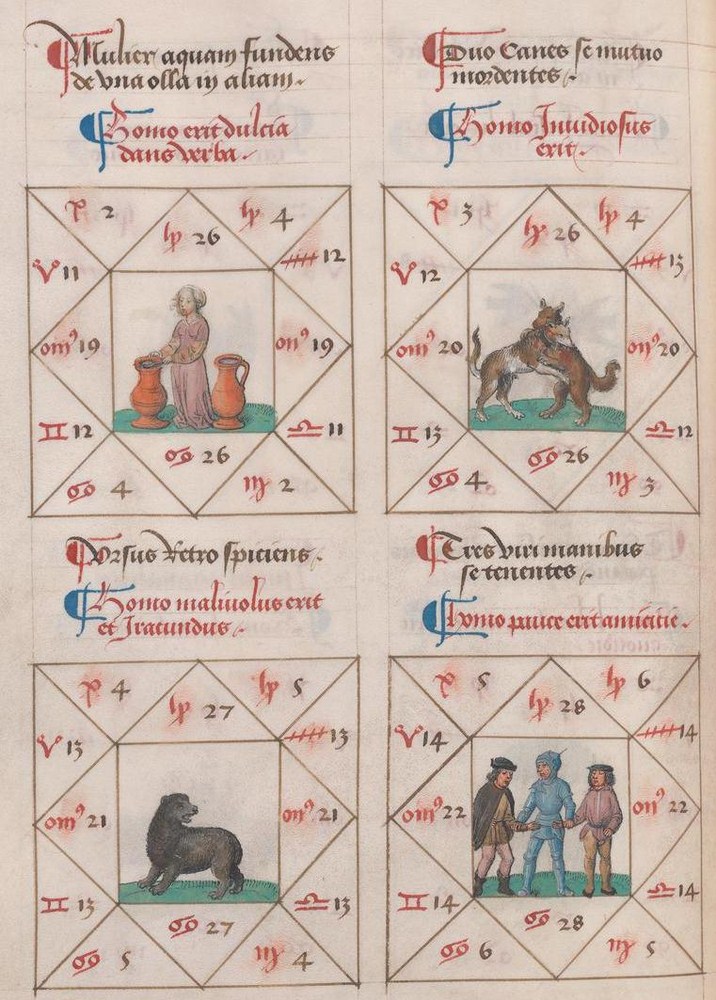 Mulier aquam fundens
de vna olla in aliam
Homo erit dulcia
dans verba
2
26
4
12
♈ 11
19
19
♊ 12
♎ 11
♋ 26
♋ 4
♍ 2
Duo Canes se mutuo
mordentes
Homo Inuidiosus
erit
3
26
4
13
♈ 12
20
20
♊ 13
♎ 12
♋ 26
♋ 4
♍ 3
Vrsus Retro spiciens
Homo maliuolus erit
et Iracundus
4
27
5
13
♈ 13
21
21
♊ 13
♎ 13
♋ 27
♋ 5
♍ 4
Tres viri manibus
se tenentes
Homo erit amicicie
5
28
6
14
♈ 14
22
22
♊ 14
♎ 14
♋ 28
♋ 6
♍ 5